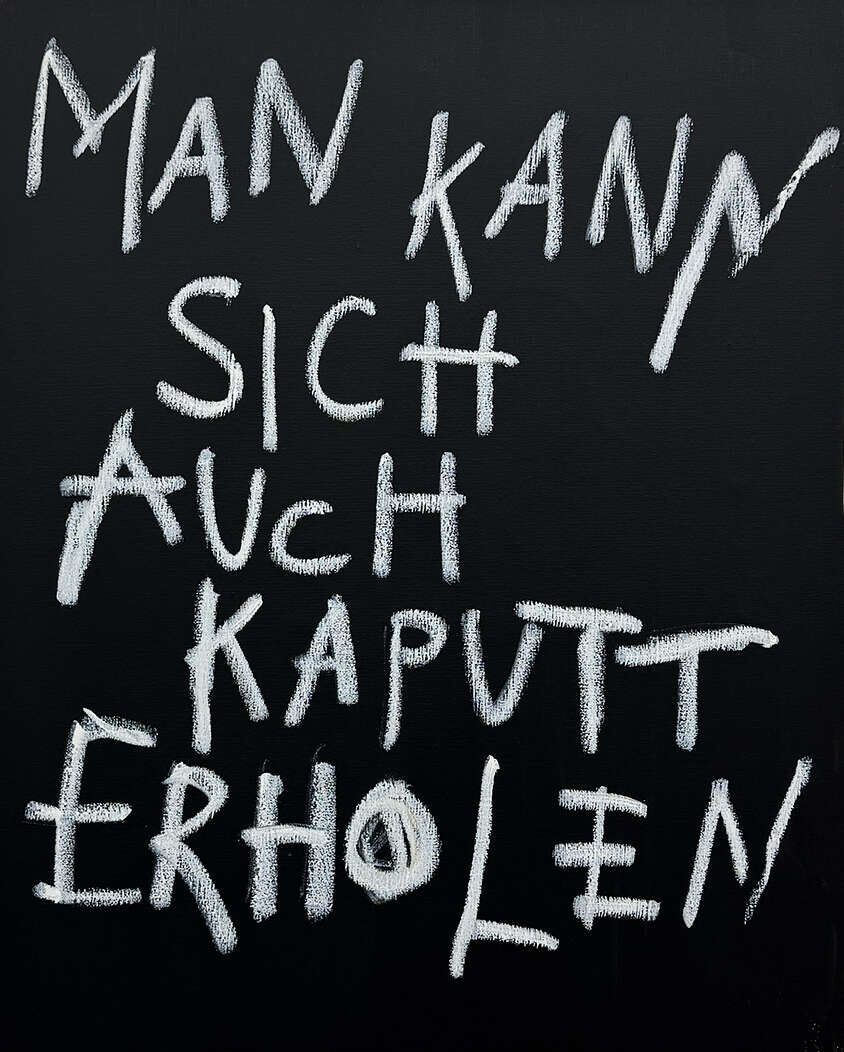 MAN KANN
SICH
AUCH
KAPUTT
ERHOLEN